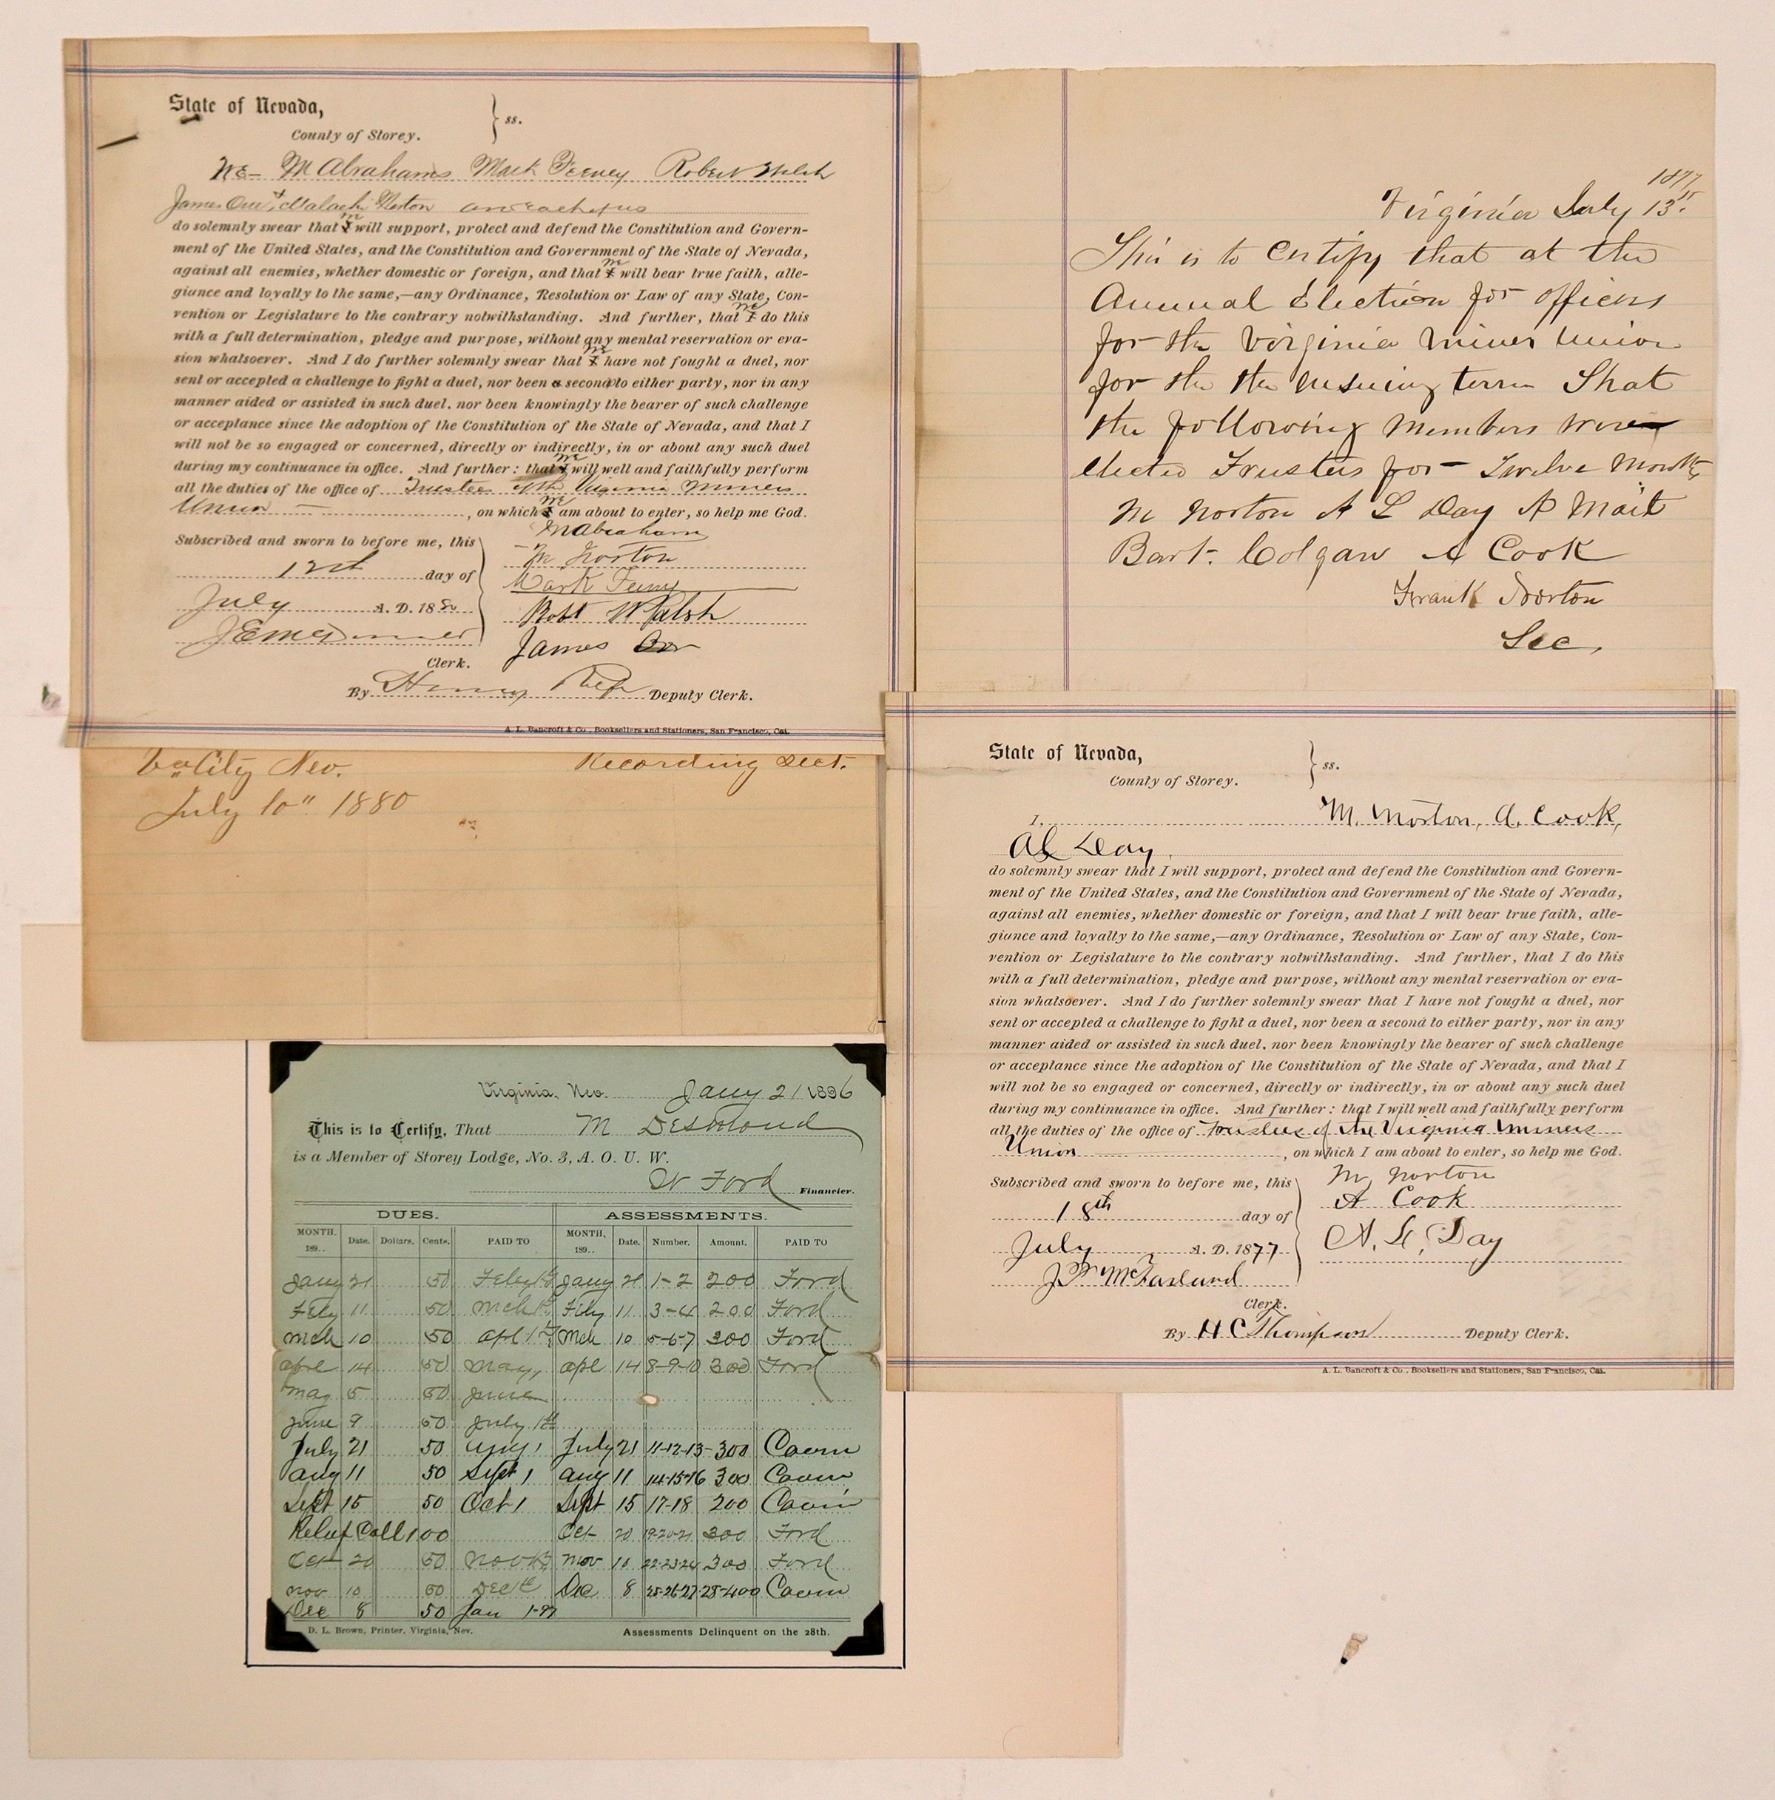 State of Nevada,
County of Storey. } ss.
We M Abrahams Mark Feeney Robert Welsh
James Orr & Malach Norton and each of us
do solemnly swear that We will support, protect and defend the Constitution and Govern-
ment of the United States, and the Constitution and Government of the State of Nevada,
against all enemies, whether domestic or foreign, and that We will bear true faith, alle-
giance and loyalty to the same,—any Ordinance, Resolution or Law of any State, Con-
vention or Legislature to the contrary notwithstanding. And further, that We do this
with a full determination, pledge and purpose, without any mental reservation or eva-
sion whatsoever. And I do further solemnly swear that We have not fought a duel, nor
sent or accepted a challenge to fight a duel, nor been a second to either party, nor in any
manner aided or assisted in such duel, nor been knowingly the bearer of such challenge
or acceptance since the adoption of the Constitution of the State of Nevada, and that I
will not be so engaged or concerned, directly or indirectly, in or about any such duel
during my continuance in office. And further: that We will well and faithfully perform
all the duties of the office of Trustee of the Virginia Miners
Union , on which We am about to enter, so help me God.
M Abrahams
Subscribed and sworn to before me, this
M Norton
12th day of
Mark Feeney
July A. D. 1880
Robt Walsh
James Orr
Clerk.
By Henry Deputy Clerk.
A. L. Bancroft & Co., Booksellers and Stationers, San Francisco, Cal.
1877
Virginia July 13th
This is to Certify that at the
Annual Election for officers
for the Virginia Miners Union
for the the ensueing term That
the following Members were
elected Trustees for Twelve Months
M Norton A L Day P Mait
Bart. Colgan A Cook
Frank Norton
Sec.
Va City Nev. Recording Sect.
July 10" 1880
State of Nevada,
County of Storey. } ss.
I, M. Norton, A. Cook,
A L Day
do solemnly swear that I will support, protect and defend the Constitution and Govern-
ment of the United States, and the Constitution and Government of the State of Nevada,
against all enemies, whether domestic or foreign, and that I will bear true faith, alle-
giance and loyalty to the same,—any Ordinance, Resolution or Law of any State, Con-
vention or Legislature to the contrary notwithstanding. And further, that I do this
with a full determination, pledge and purpose, without any mental reservation or eva-
sion whatsoever. And I do further solemnly swear that I have not fought a duel, nor
sent or accepted a challenge to fight a duel, nor been a second to either party, nor in any
manner aided or assisted in such duel, nor been knowingly the bearer of such challenge
or acceptance since the adoption of the Constitution of the State of Nevada, and that I
will not be so engaged or concerned, directly or indirectly, in or about any such duel
during my continuance in office. And further: that I will well and faithfully perform
all the duties of the office of Trustees of the Virginia Miners
Union , on which I am about to enter, so help me God.
M, Norton
Subscribed and sworn to before me, this
A Cook
18th day of
A. L. Day
July A. D. 1877
McFarland
Clerk.
By H C Thompson Deputy Clerk.
A. L. Bancroft & Co., Booksellers and Stationers, San Francisco, Cal.
Virginia, Nev. Jany 21 1896
This is to Certify, That M Desmond
is a Member of Storey Lodge, No. 3, A. O. U. W.
W Ford Financier.
DUES. ASSESSMENTS.
MONTH, 189.. Date. Dollars. Cents. PAID TO MONTH, 189.. Date. Number. Amount. PAID TO
Jany 21 50 Feby 1st Jany 21 1-2 200 Ford
Feby 11 50 Mch 1st Feby 11 3-4 200 Ford
Mch 10 50 Apl 1st Mch 10 5-6-7 300 Ford
Aprl 14 50 May, Apl 14 8-9-10 300 Ford
May 5 50 June
June 9 50 July 1st
July 21 50 Aug 1 July 21 11-12-13 300 Cavin
Aug 11 50 Sept 1 Aug 11 14-15-16 300 Cavin
Sept 15 50 Oct 1 Sept 15 17-18 200 Cavin
Relief Call 1 00 Oct 20 19-20-21 300 Ford
Oct 20 50 Nov 1st Nov 10 22-23-24 300 Ford
Nov 10 50 Dec 1st Dec 8 25-26-27-28-400 Cavin
Dec 8 50 Jan 1-97
D. L. Brown, Printer, Virginia, Nev. Assessments Delinquent on the 28th.